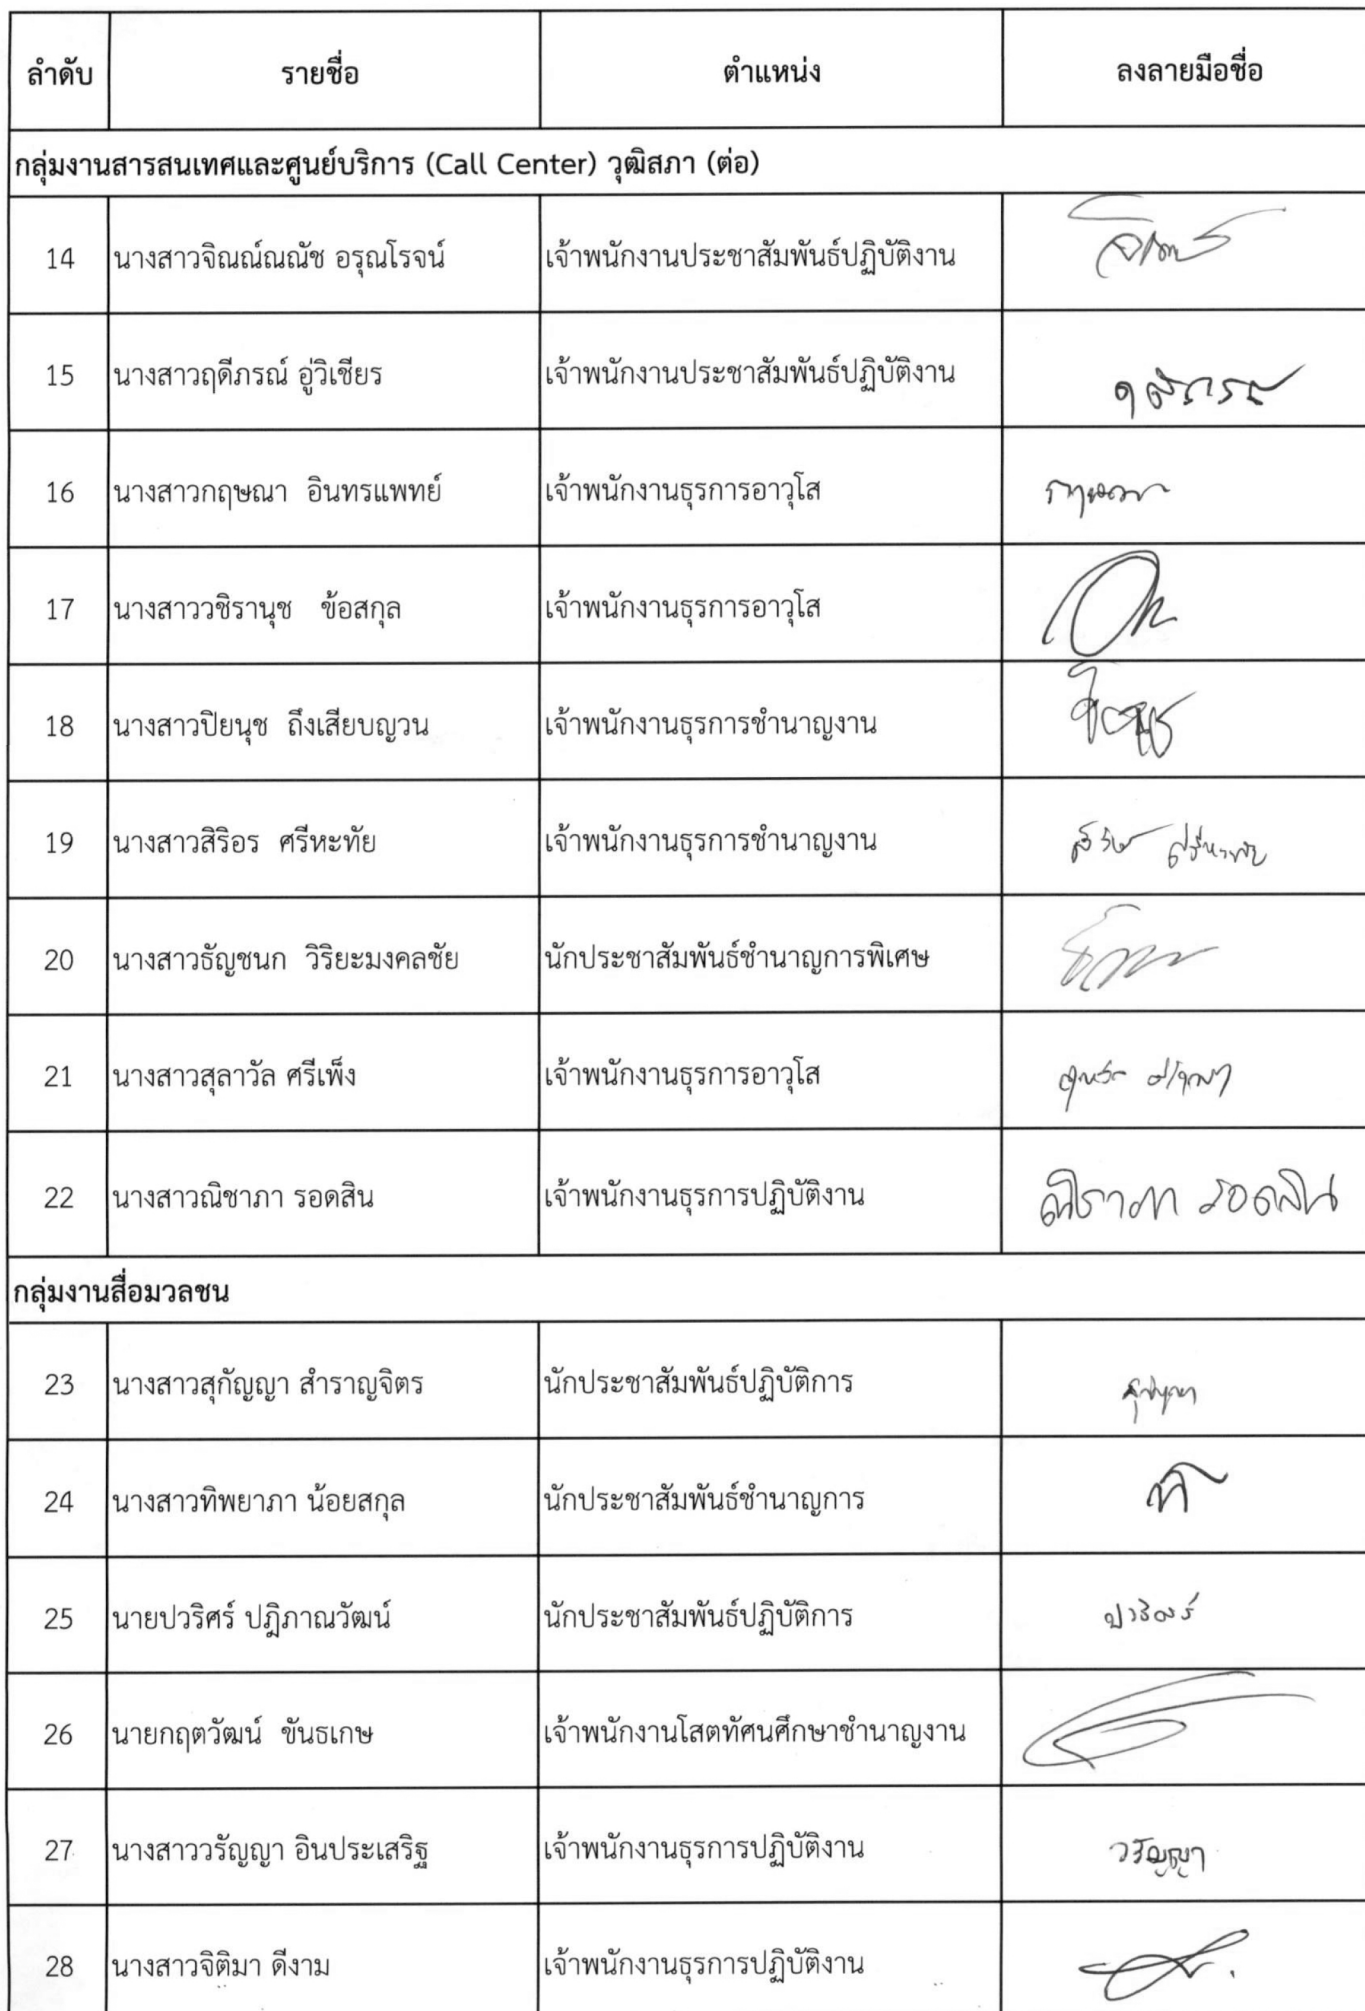 ลำดับ รายชื่อ ตำแหน่ง ลงลายมือชื่อ
กลุ่มงานสารสนเทศและศูนย์บริการ (Call Center) วุฒิสภา (ต่อ)
14 นางสาวจิณณ์ณณัช อรุณโรจน์ เจ้าพนักงานประชาสัมพันธ์ปฏิบัติงาน
15 นางสาวฤดีภรณ์ อู่วิเชียร เจ้าพนักงานประชาสัมพันธ์ปฏิบัติงาน ฤดีภรณ์
16 นางสาวกฤษณา อินทรแพทย์ เจ้าพนักงานธุรการอาวุโส กฤษณา
17 นางสาววชิรานุช ข้อสกุล เจ้าพนักงานธุรการอาวุโส
18 นางสาวปิยนุช ถึงเสียบญวน เจ้าพนักงานธุรการชำนาญงาน
19 นางสาวสิริอร ศรีหะทัย เจ้าพนักงานธุรการชำนาญงาน สิริอร ศรีหะทัย
20 นางสาวธัญชนก วิริยะมงคลชัย นักประชาสัมพันธ์ชำนาญการพิเศษ
21 นางสาวสุลาวัล ศรีเพ็ง เจ้าพนักงานธุรการอาวุโส
22 นางสาวณิชาภา รอดสิน เจ้าพนักงานธุรการปฏิบัติงาน ณิชาภา รอดสิน
กลุ่มงานสื่อมวลชน
23 นางสาวสุกัญญา สำราญจิตร นักประชาสัมพันธ์ปฏิบัติการ สุกัญญา
24 นางสาวทิพยาภา น้อยสกุล นักประชาสัมพันธ์ชำนาญการ
25 นายปวริศร์ ปฏิภาณวัฒน์ นักประชาสัมพันธ์ปฏิบัติการ ปวริศร์
26 นายกฤตวัฒน์ ขันธเกษ เจ้าพนักงานโสตทัศนศึกษาชำนาญงาน
27 นางสาววรัญญา อินประเสริฐ เจ้าพนักงานธุรการปฏิบัติงาน วรัญญา
28 นางสาวจิติมา ดีงาม เจ้าพนักงานธุรการปฏิบัติงาน